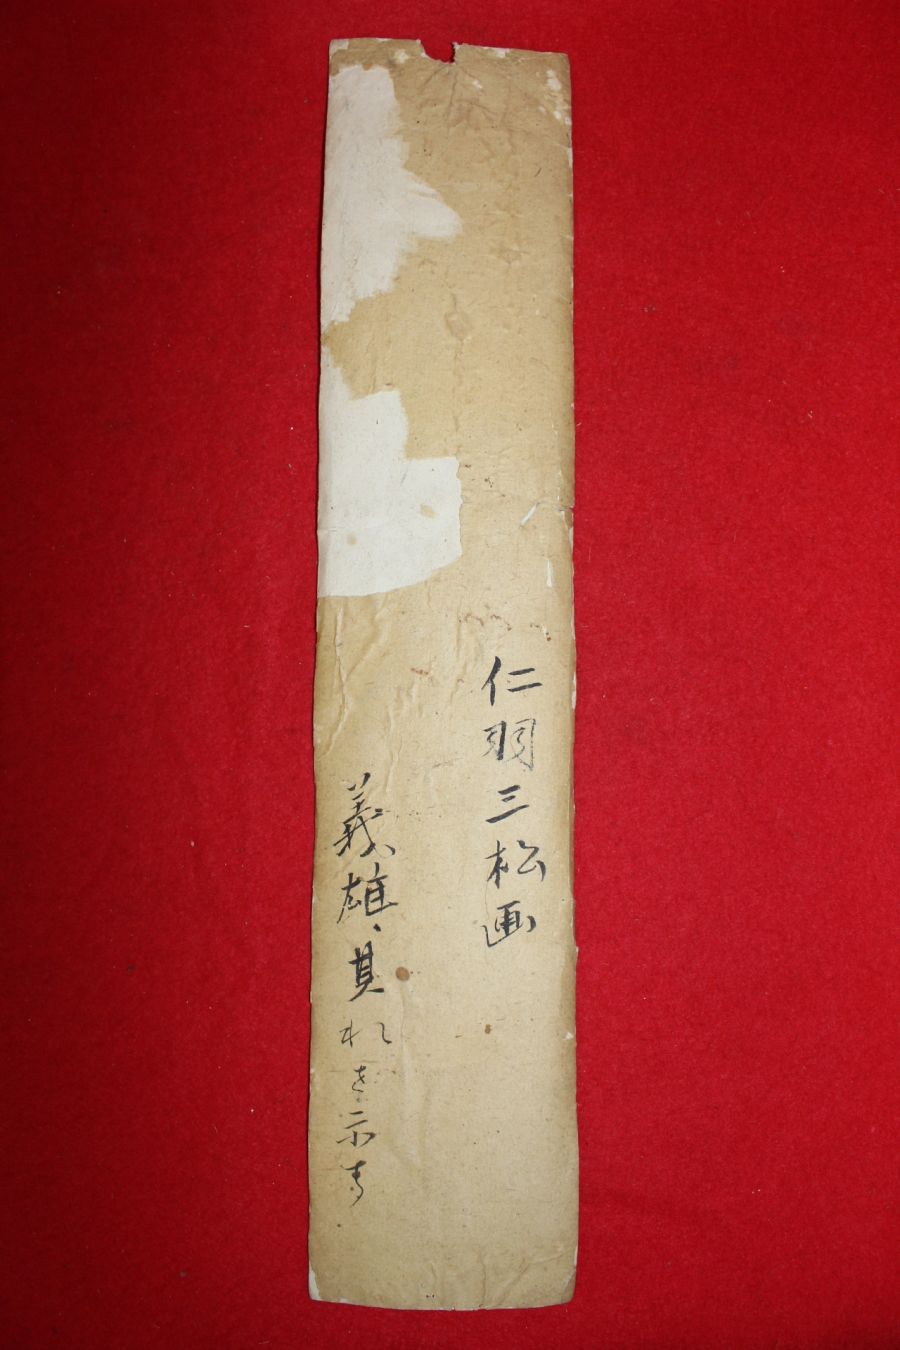 仁羽三松画
義雄、其れを示す